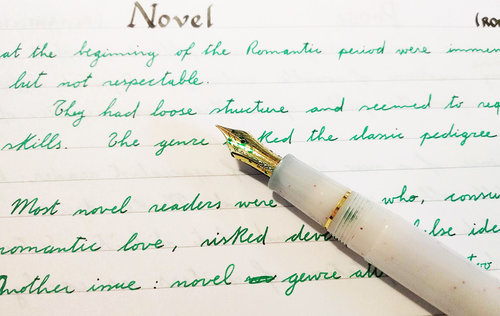 Novel
at the beginning of the Romantic period were
but not respectable.
They had loose structure and seemed to
skills. The genre the classic pedigree
Most novel readers were who,
romantic love, risked
Another issue: novel genre